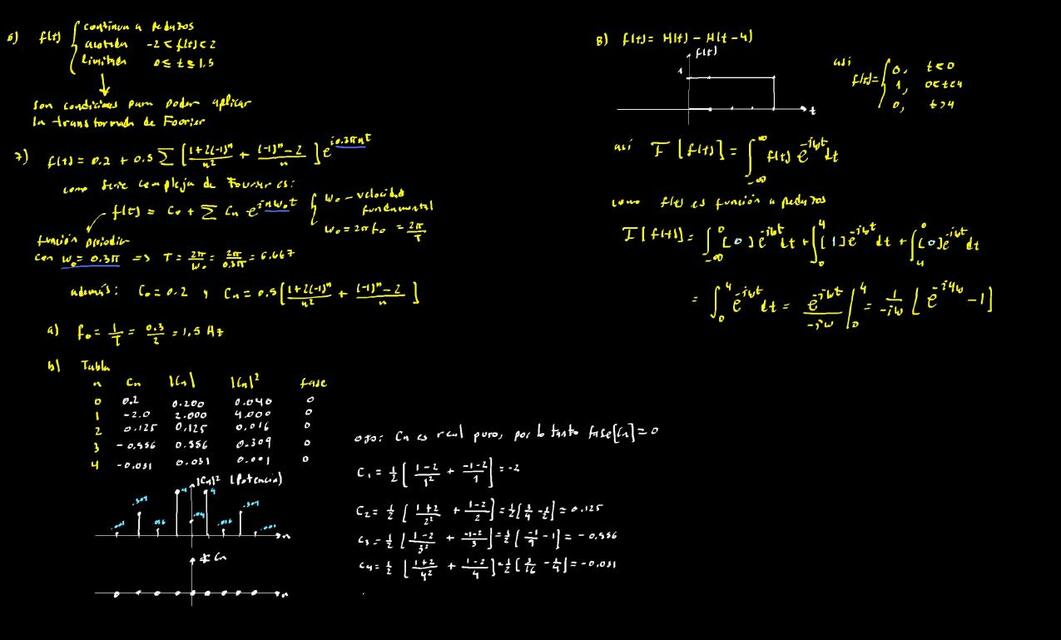 6) f(t) { continua a pedazos
acotada -2 < f(t) < 2
limitada 0 ≤ t ≤ 1.5
Son condiciones para poder aplicar
la transformada de Fourier
7) f(t) = 0.2 + 0.5 Σ [ (1+2(-1)^n)/n² + ((-1)^n-2)/n ] e^{i0.3πnt}
como serie compleja de Fourier es:
f(t) = C₀ + Σ Cn e^{inω₀t} { ω₀ - velocidad fundamental
ω₀ = 2πf₀ = 2π/T
función periodica
con ω₀ = 0.3π => T = 2π/ω₀ = 2π/0.3π = 6.667
además: C₀ = 0.2 y Cn = 0.5 [ (1+2(-1)^n)/n² + ((-1)^n-2)/n ]
a) f₀ = 1/T = 0.3/2 = 1.5 Hz
b) Tabla
n Cn |Cn| |Cn|² fase
0 0.2 0.200 0.040 0
1 -2.0 2.000 4.000 0
2 0.125 0.125 0.016 0
3 -0.556 0.556 0.309 0
4 -0.031 0.031 0.001 0
|Cn|² (Potencia)
.001 .309 .016 4 .04 4 .016 .309 .001 n
∡ Cn
n
ojo: Cn es real puro, por lo tanto fase[Cn] = 0
C₁ = 1/2 [ (1-2)/1² + (-1-2)/1 ] = -2
C₂ = 1/2 [ (1+2)/2² + (1-2)/2 ] = 1/2 [ 3/4 - 1/2 ] = 0.125
C₃ = 1/2 [ (1-2)/3² + (-1-2)/3 ] = 1/2 [ -1/9 - 1 ] = -0.556
C₄ = 1/2 [ (1+2)/4² + (1-2)/4 ] = 1/2 [ 3/16 - 1/4 ] = -0.031
8) f(t) = H(t) - H(t-4)
f(t)
1
t
asi f(t) = { 0, t<0
1, 0<t<4
0, t>4
asi F[f(t)] = ∫_{-∞}^{∞} f(t) e^{-iωt} dt
como f(t) es función a pedazos
F[f(t)] = ∫_{-∞}^{0} [0] e^{-iωt} dt + ∫_0^4 [1] e^{-iωt} dt + ∫_4^0 [0] e^{-iωt} dt
= ∫_0^4 e^{-iωt} dt = e^{-iωt}/-iω |_0^4 = 1/-iω [ e^{-i4ω} - 1 ]